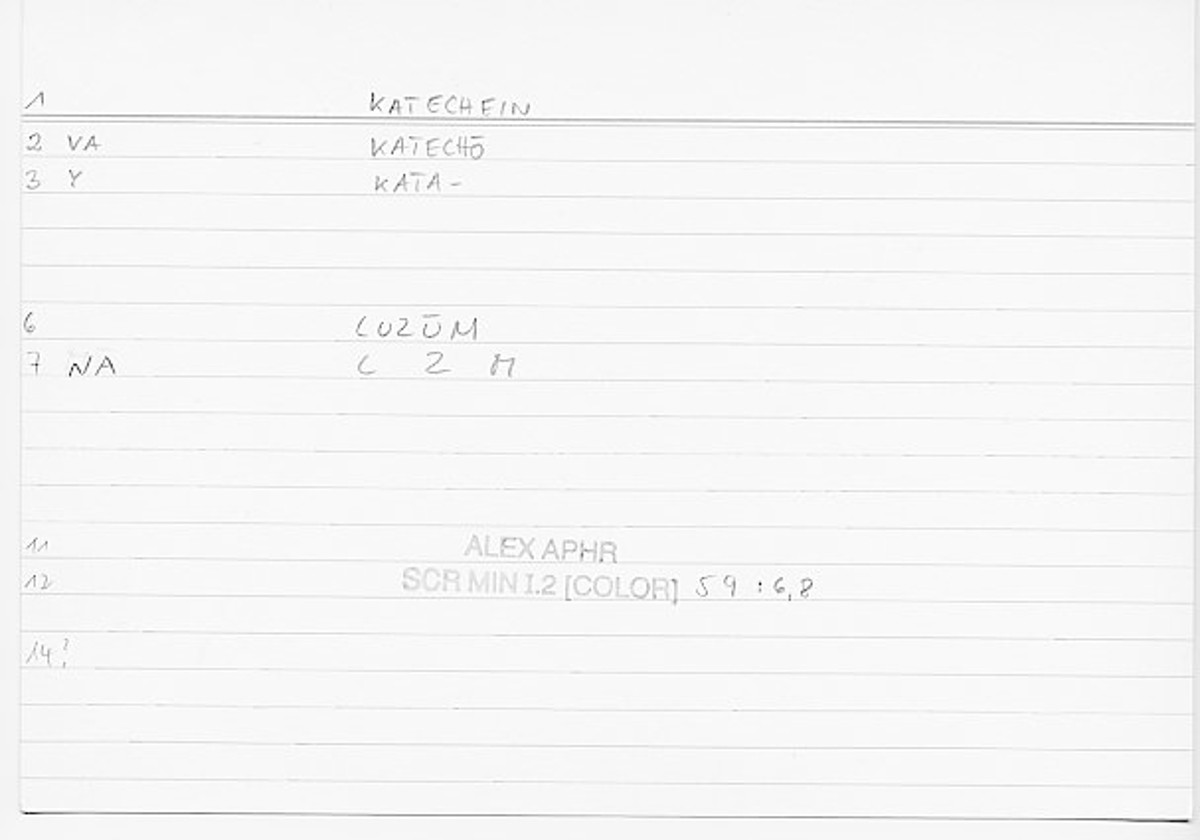 1 KATECHEIN
2 VA KATECHŌ
3 Y KATA-
6 LUZŪM
7 NA L Z M
11 ALEX APHR
12 SCR MIN I.2 [COLOR] 59 : 6,8
14?